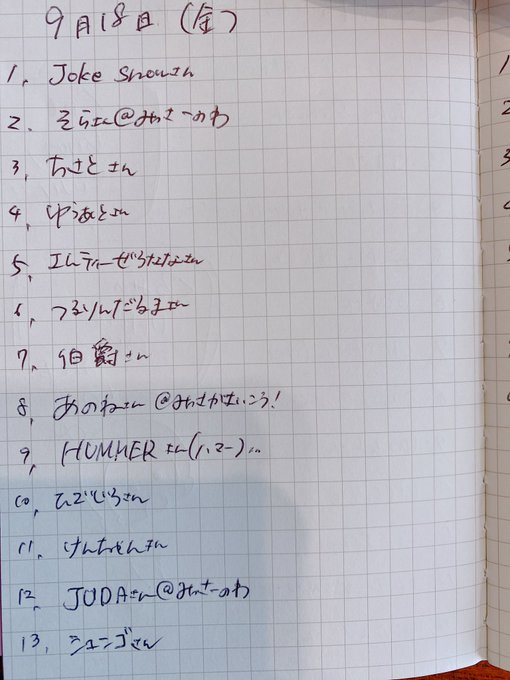 9月18日(金)
1. Joke Snowさん
2. そらさん@みさーのわ
3, ちさとさん
4, ゆうあとさん
5, エムティーぜろななさん
6, つるりんだるまさん
7, 伯爵さん
8, あのねさん@みさかはいこう!
9, HUMMERさん
10, ひでじろうさん
11, けんちゃんさん
12, JUDAさん@みさーのわ
13, シュンゴさん